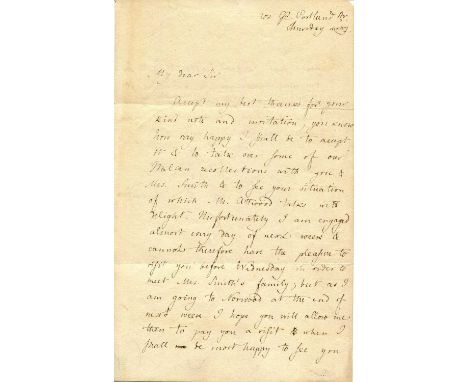 Gt. Portland St
Thursday
My dear Sir
Accept my best thanks for your
kind note and invitation, you know
how very happy I shall be to accept
it & to talk over some of our
Italian recollections with you &
Mrs. Smith & to see your situation
of which Mr. Attwood talks with
delight. Unfortunately I am engaged
almost every day of next week &
cannot therefore have the pleasure to
visit you before Wednesday in order to
meet Mrs. Smith's family; but as I
am going to Norwood at the end of
next week I hope you will allow me
then to pay you a visit & when I
shall be most happy to see you